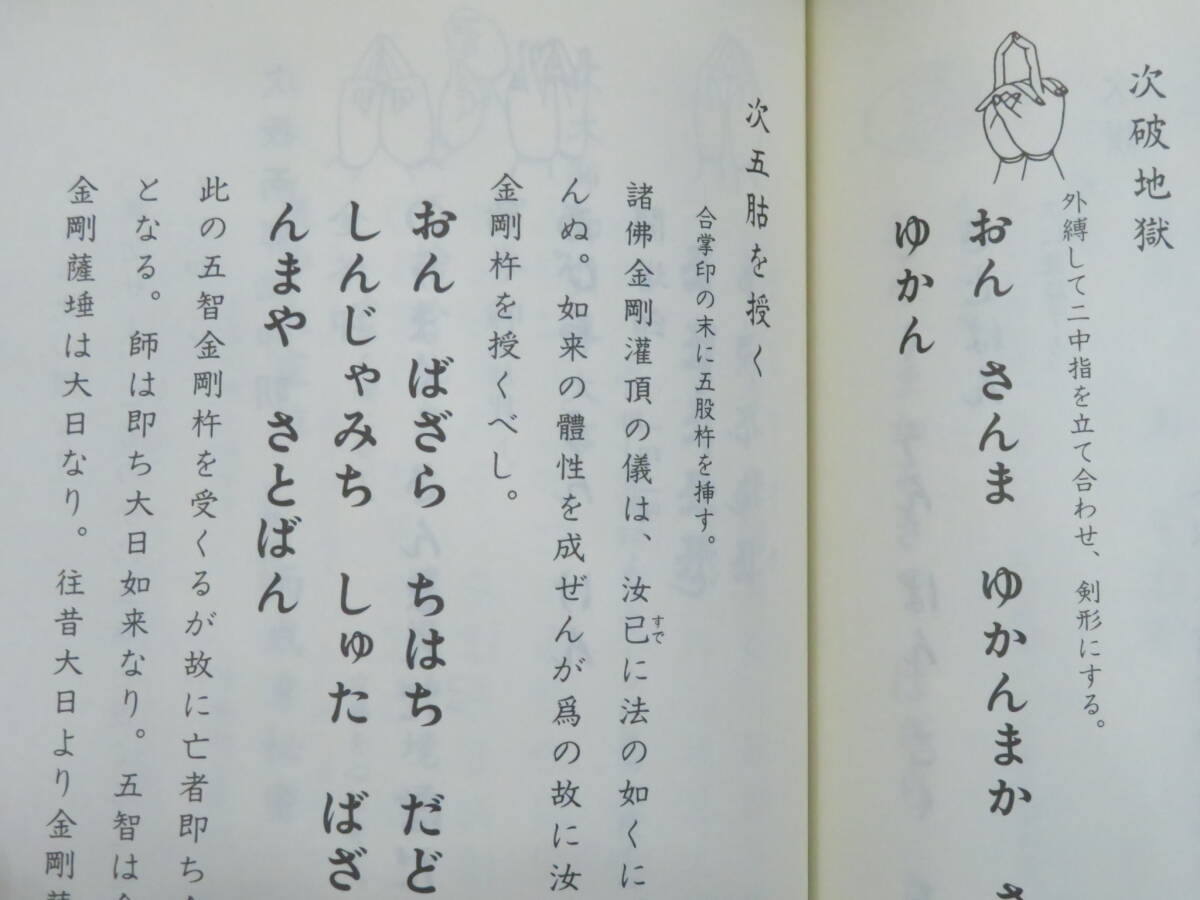 次破地獄
外縛して二中指を立て合わせ、剣形にする。
おん さんま ゆかんまか さ
ゆかん
次五股を授く
合掌印の末に五股杵を挿す。
諸佛金剛灌頂の儀は、汝已すでに法の如くに
んぬ。如来の體性を成ぜんが爲の故に汝
金剛杵を授くべし。
おん ばざら ちはち だど
しんじゃみち しゅた ばざ
んまや さとばん
此の五智金剛杵を受くるが故に亡者即ち
となる。師は即ち大日如来なり。五智は
金剛薩埵は大日なり。往昔大日より金剛